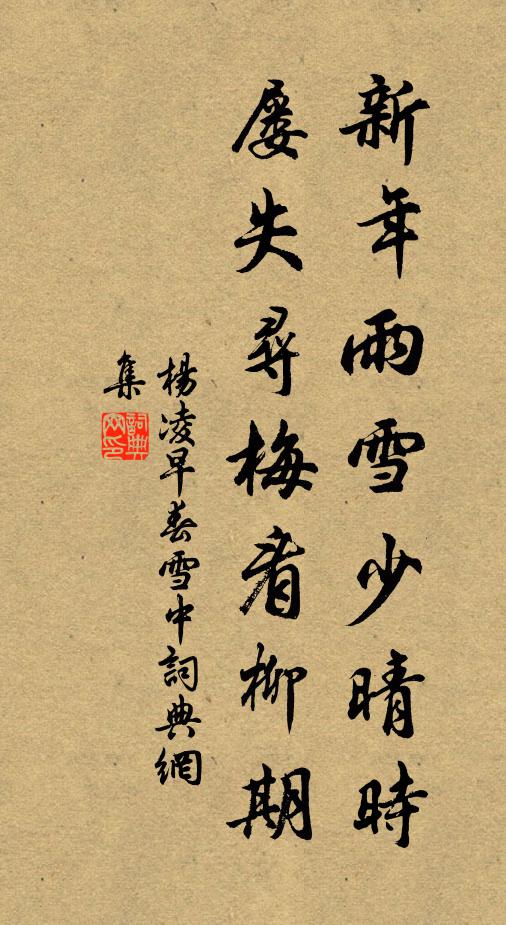 新年雨雪少晴時
屢失尋梅看柳期
楊凌早春雪中詞典網
集
詞典網印